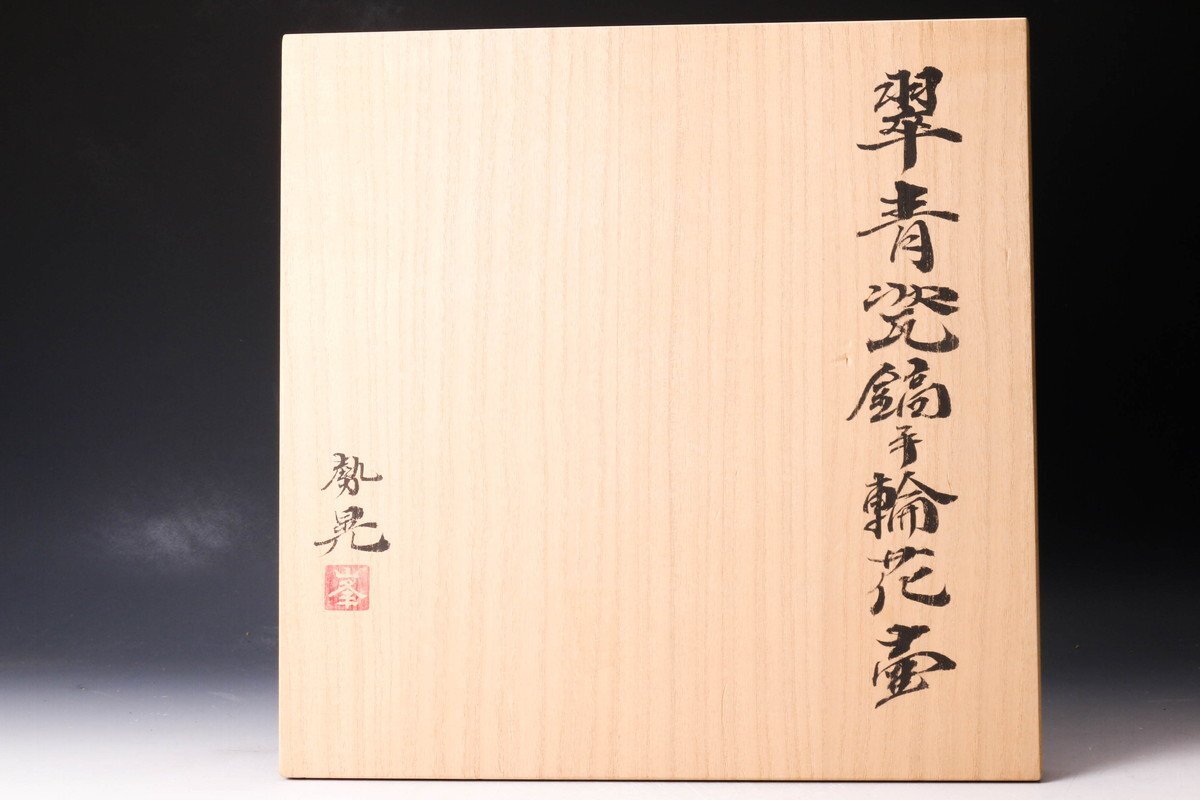 翠青瓷鎬手輪花壷
勢晃
峯